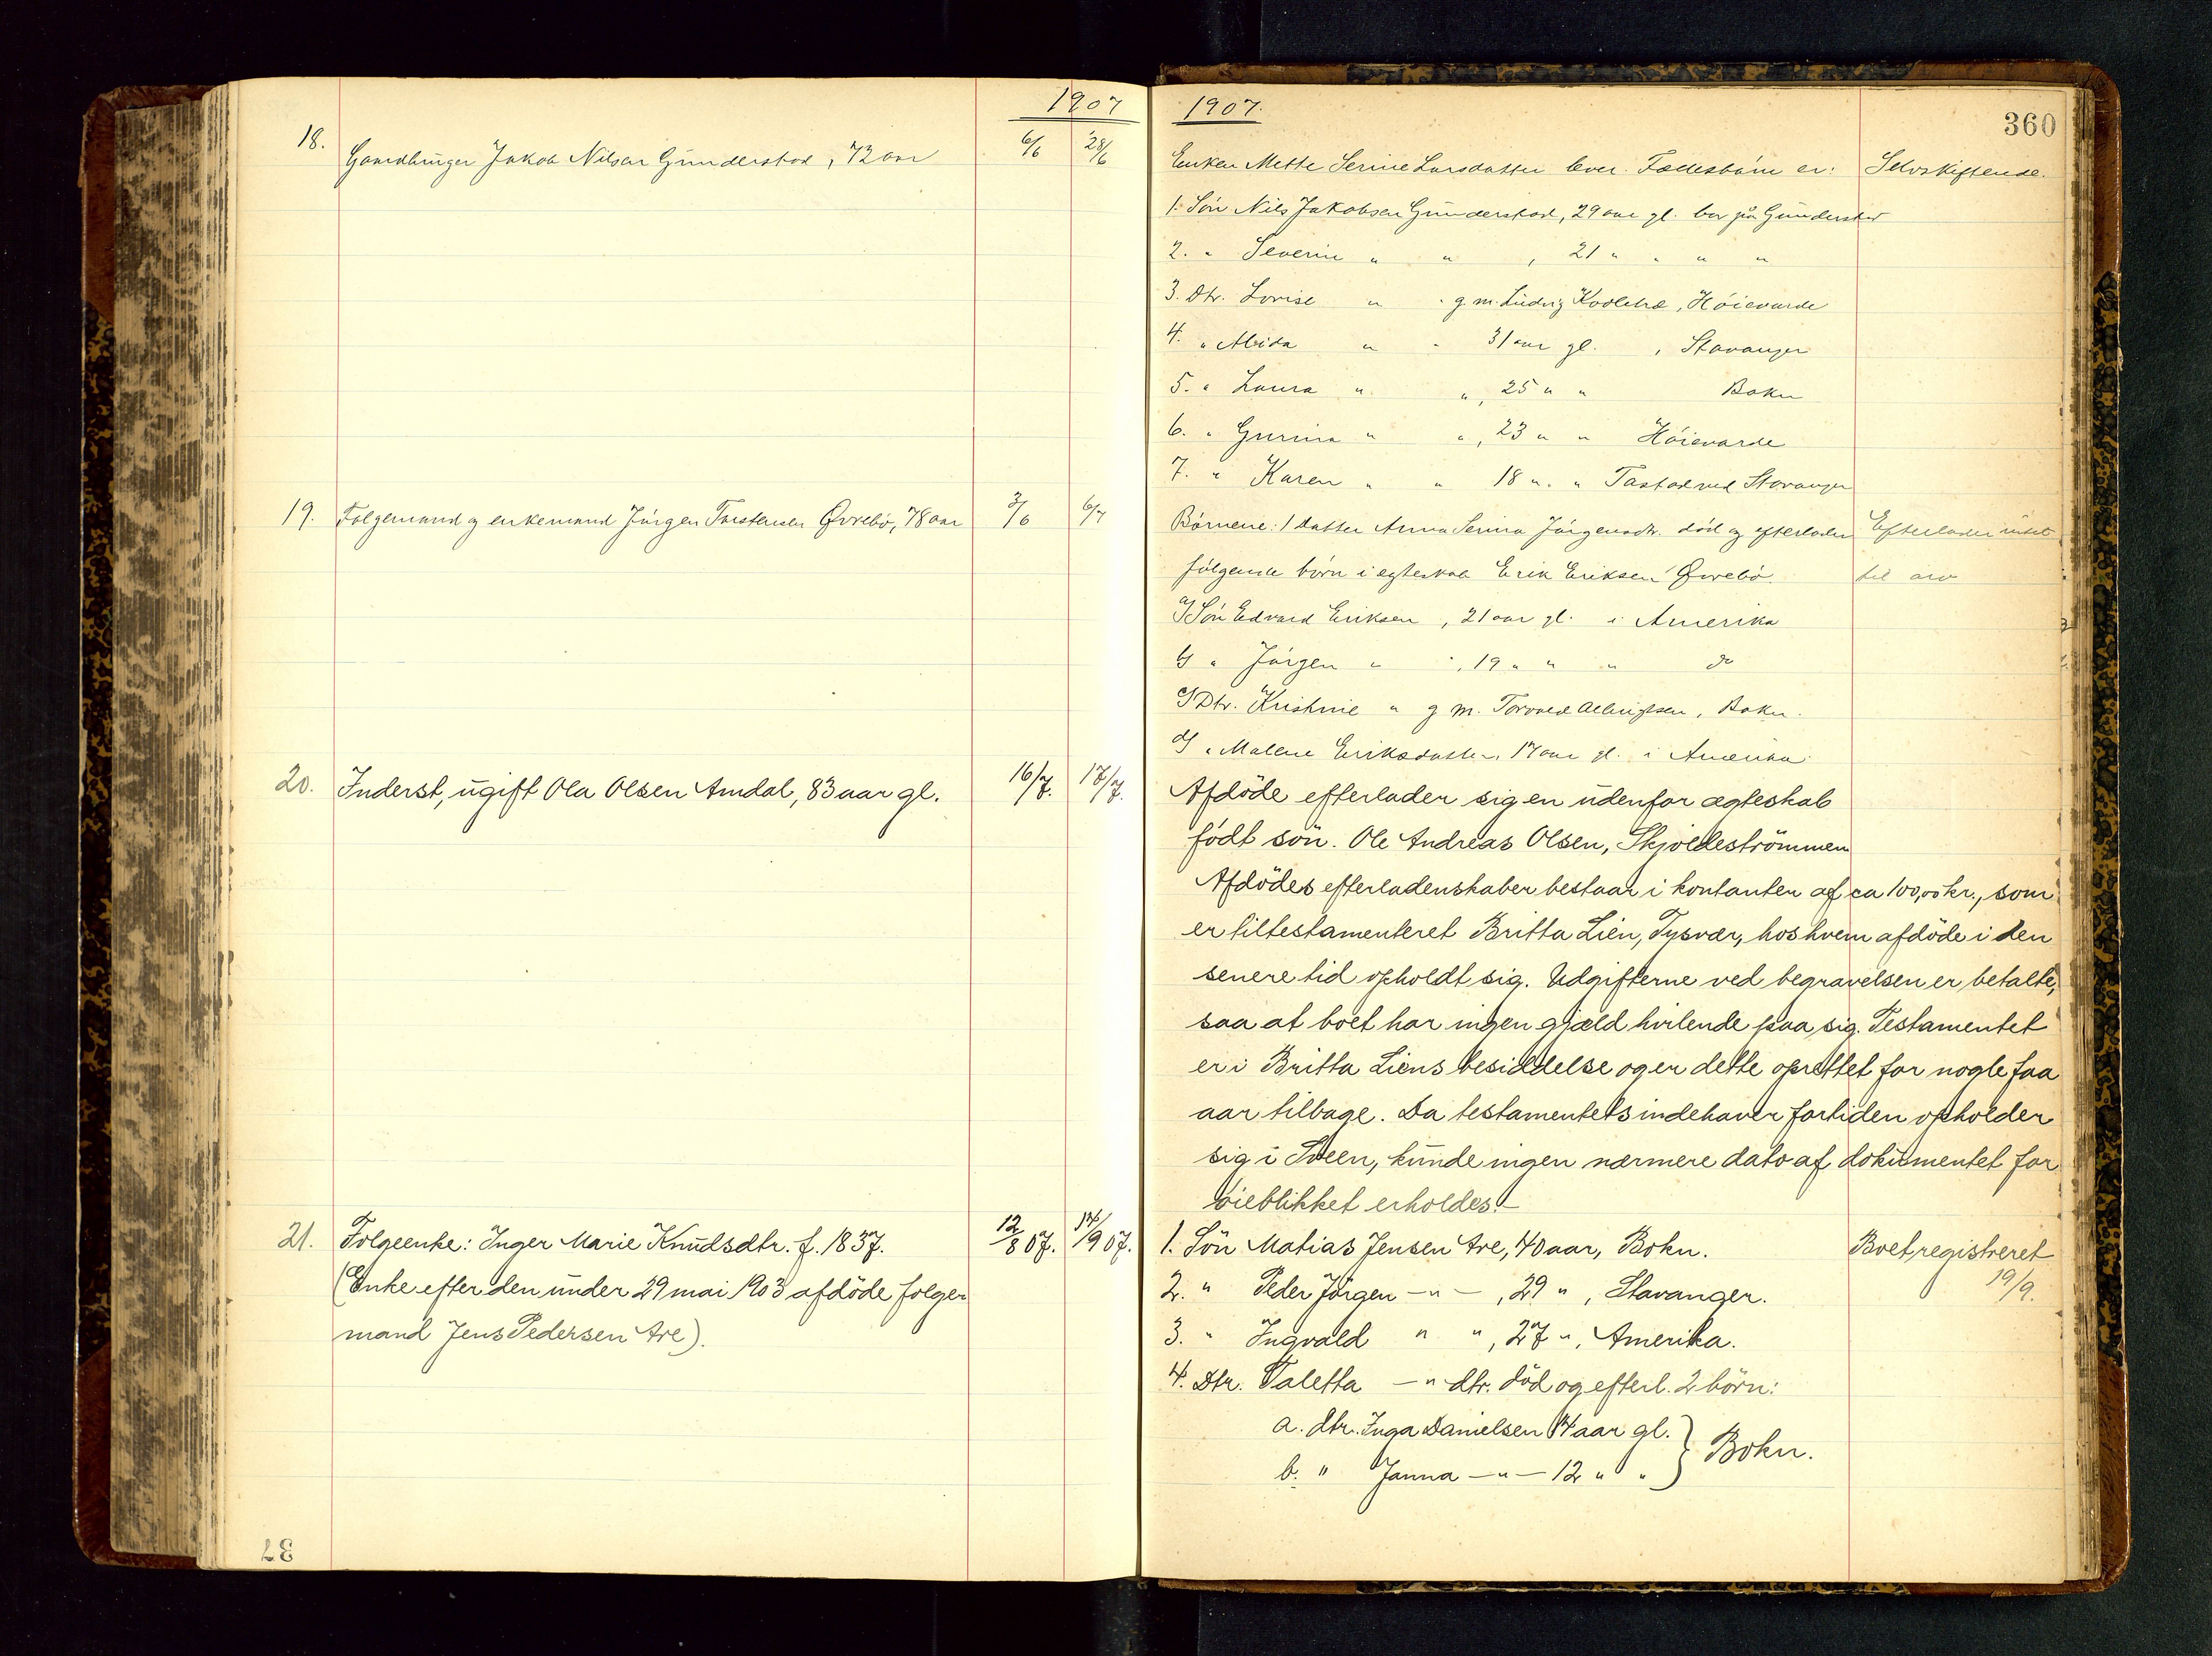 1907
18. Gaardbruger Jakob Nilsen Gunderstad, 72 aar 6/6 28/6
19. Følgemand og enkemand Jørgen Torstensen Øvrebø, 78 aar 3/6 6/7
20. Inderst, ugift Ola Olsen Amdal, 83 aar gl. 16/7. 17/7.
21. Folgeenke: Inger Marie Knudsdtr. f. 1837. 12/8 07. 14/9 07.
(Enke efter den under 29 mai 1903 afdöde folge-
mand Jens Pedersen Are).
37
1907.
360
Enken Mette Serine Larsdatter lever. Fællesbørn er: Selvskiftende.
1. Søn Nils Jakobsen Gunderstad, 29 aar gl. bor på Gunderstad
2. " Severin " " , 21 " " " "
3. Dtr. Lovise " " g. m. Ludvig Kvaleha, Høievarde
4. " Alida " " 31 aar gl. , Stavanger
5. " Laura " " , 25 " " Bokn
6. " Gurina " " , 23 " " Høievarde
7. " Karen " " 18 " " Tastad ved Stavanger
Börnene: 1 datter Anna Serina Jørgensdtr. död og efterlader Efterlader intet
følgende børn i egteskab Erik Eriksen Øvrebø. til arv
a) Søn Edvard Eriksen , 21 aar gl. i Amerika
b) " Jørgen " " , 19 " " " do
c) Dtr. Kristine " g. m. Torvald Albrigtsen, Bokn.
d) " Malene Eriksdatter, 17 aar gl. i Amerika.
Afdöde efterlader sig en udenfor ægteskab
födt sön. Ole Andreas Olsen, Skjoldeströmmen
Afdödes efterladenskaber bestaar i kontanter af ca 100,00 kr., som
er tiltestamenteret Britta Lien, Tysvær, hos hvem afdöde i den
senere tid opholdt sig. Udgifterne ved begravelsen er betalte,
saa at boet har ingen gjæld hvilende paa sig. Testamentet
er i Britta Liens besiddelse og er dette oprettet for nogle faa
aar tilbage. Da testamentets indehaver fortiden opholder
sig i Sveen, kunde ingen nærmere dato af dokumentet for
öieblikket erholdes.
1. Sön Matias Jensen Are, 40 aar, Bokn. Boet registreret
2. " Peder Jörgen - " - , 29 " , Stavanger. 19/9.
3. " Ingvald " " , 27 " , Amerika.
4. Dtr. Taletta - " dtr. död og efterl. 2 börn:
a. dtr. Inga Danielsen 14 aar gl. } Bokn.
b. " Janna - " - 12 " "